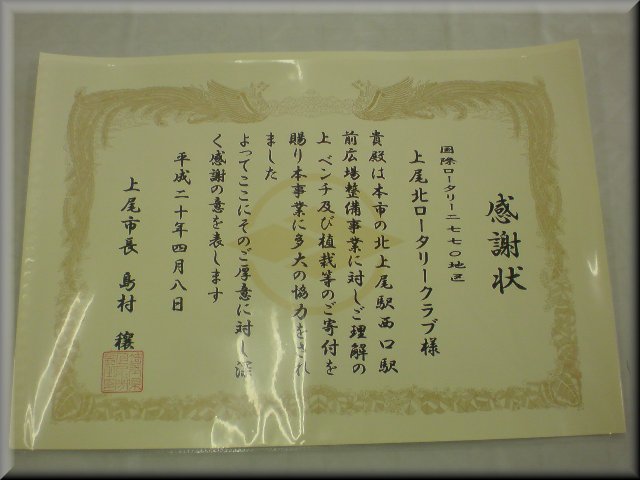 感謝状
国際ロータリー二七七〇地区
上尾北ロータリークラブ様
貴殿は本市の北上尾駅西口駅
前広場整備事業に対しご理解の
上 ベンチ及び植栽等のご寄付を
賜り本事業に多大の協力をされ
ました
よってここにそのご厚意に対し深
く感謝の意を表します
平成二十年四月八日
上尾市長 島村 穰